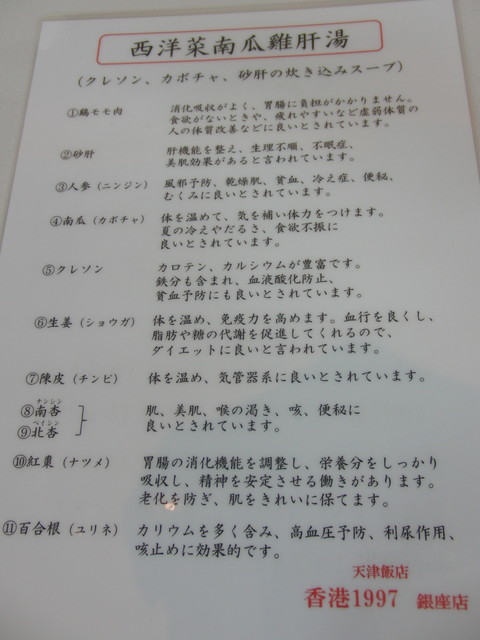 西洋菜南瓜雞肝湯
(クレソン、カボチャ、砂肝の炊き込みスープ)
①鶏モモ肉 消化吸収がよく、胃腸に負担がかかりません。
食欲がないときや、疲れやすいなど虚弱体質の
人の体質改善などに良いとされています。
②砂肝 肝機能を整え、生理不順、不眠症、
美肌効果があると言われています。
③人参(ニンジン) 風邪予防、乾燥肌、貧血、冷え症、便秘、
むくみに良いとされています。
④南瓜(カボチャ) 体を温めて、気を補い体力をつけます。
夏の冷えやだるさ、食欲不振に
良いとされています。
⑤クレソン カロテン、カルシウムが豊富です。
鉄分も含まれ、血液酸化防止、
貧血予防にも良いとされています。
⑥生姜(ショウガ) 体を温め、免疫力を高めます。血行を良くし、
脂肪や糖の代謝を促進してくれるので、
ダイエットに良いと言われています。
⑦陳皮(チンピ) 体を温め、気管器系に良いとされています。
ナンシン
⑧南杏 肌、美肌、喉の渇き、咳、便秘に
ペイシン
⑨北杏 良いとされています。
⑩紅棗(ナツメ) 胃腸の消化機能を調整し、栄養分をしっかり
吸収し、精神を安定させる働きがあります。
老化を防ぎ、肌をきれいに保てます。
⑪百合根(ユリネ) カリウムを多く含み、高血圧予防、利尿作用、
咳止めに効果的です。
天津飯店
香港1997 銀座店